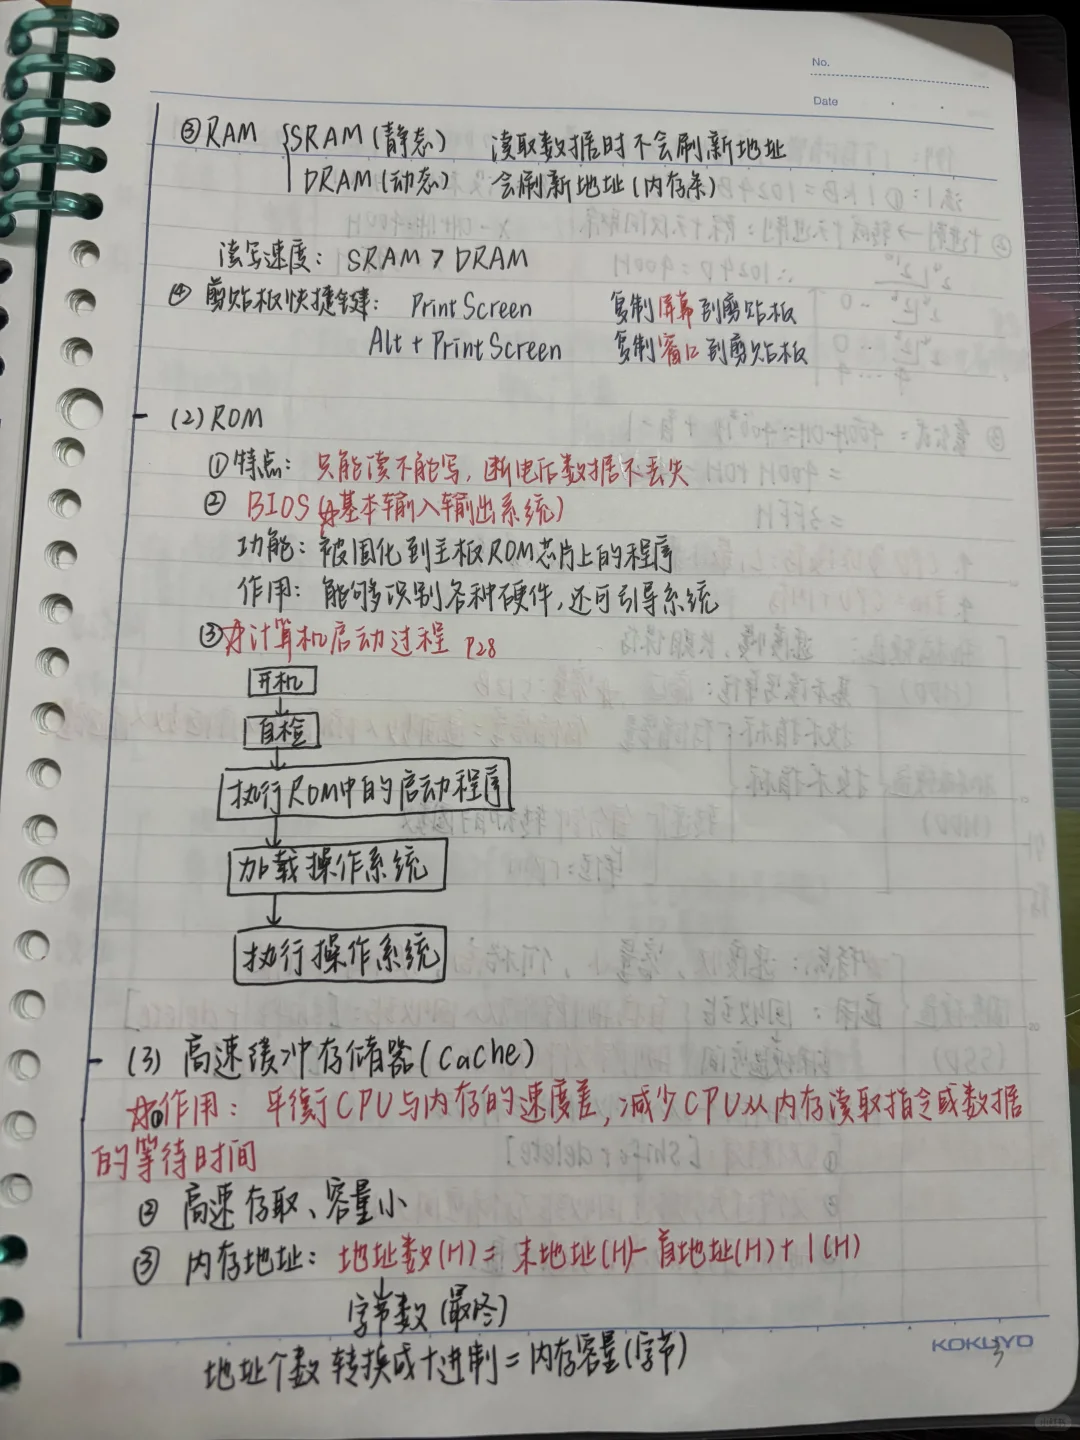 No.
Date
③RAM {SRAM(静态) 读取数据时不会刷新地址
DRAM(动态) 会刷新地址(内存条)
读写速度: SRAM > DRAM
④ 剪贴板快捷键: Print Screen 复制屏幕到剪贴板
Alt + Print Screen 复制窗口到剪贴板
(2) ROM
①特点: 只能读不能写,断电后数据不丢失
② BIOS(☆基本输入输出系统)
功能: 被固化到主板ROM芯片上的程序
作用: 能够识别各种硬件,还可引导系统
③☆计算机启动过程 P28
开机
自检
执行ROM中的启动程序
加载操作系统
执行操作系统
(3) 高速缓冲存储器(Cache)
☆①作用: 平衡CPU与内存的速度差,减少CPU从内存读取指令或数据
的等待时间
② 高速存取、容量小
③ 内存地址: 地址数(H) = 末地址(H)- 首地址(H)+ 1(H)
字节数(最终)
地址个数转换成十进制=内存容量(字节)
KOKUYO
3